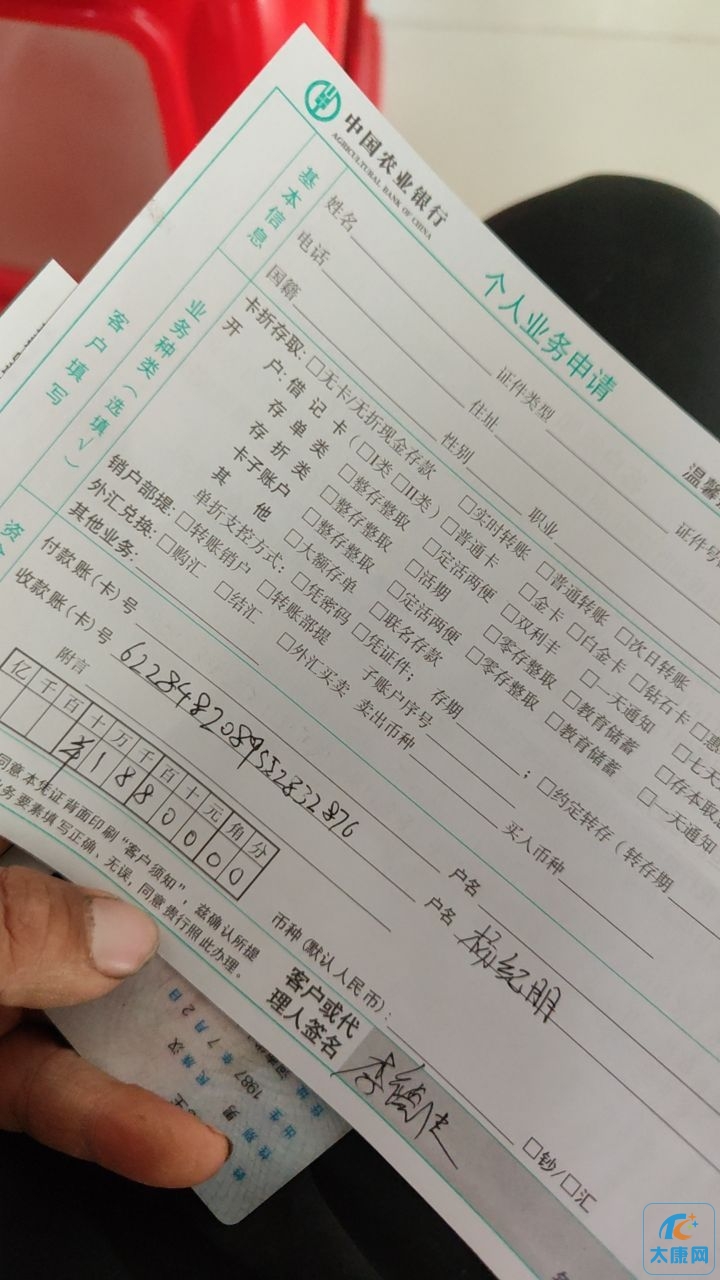 中国农业银行
AGRICULTURAL BANK OF CHINA
个人业务申请
温馨
基本信息
姓名
证件类型
证件号
电话
住址
国籍
性别
职业
客户填写
业务种类（选填√）
卡折存取: □无卡/无折现金存款 □实时转账 □普通转账 □次日转账
开户: 借记卡（□I类 □II类） □普通卡 □金卡 □白金卡 □钻石卡
存单类 □整存整取 □定活两便 □双利丰 □一天通知 □七天
存折类 □整存整取 □活期 □零存整取 □教育储蓄 □存本取
卡子账户 □整存整取 □定活两便 □零存整取 □教育储蓄 □一天通知
其他 □大额存单 □联名存款 存期 ; □约定转存（转存期
单折支控方式: □凭密码 □凭证件; 子账户序号
销户部提: □转账销户 □转账部提
外汇兑换: □购汇 □结汇 □外汇买卖 卖出币种 买入币种
其他业务:
付款账(卡)号
户名
收款账(卡)号 6228482089552832876
户名 杨纪明
附言
亿千百十万千百十元角分
¥18800000
币种(默认人民币):
□钞/□汇
同意本凭证背面印刷“客户须知”，兹确认所提
业务要素填写正确、无误，同意贵行照此办理。
客户或代
理人签名
性别 男 民族 汉
出生 1987 年 7 月 2 日
太康网